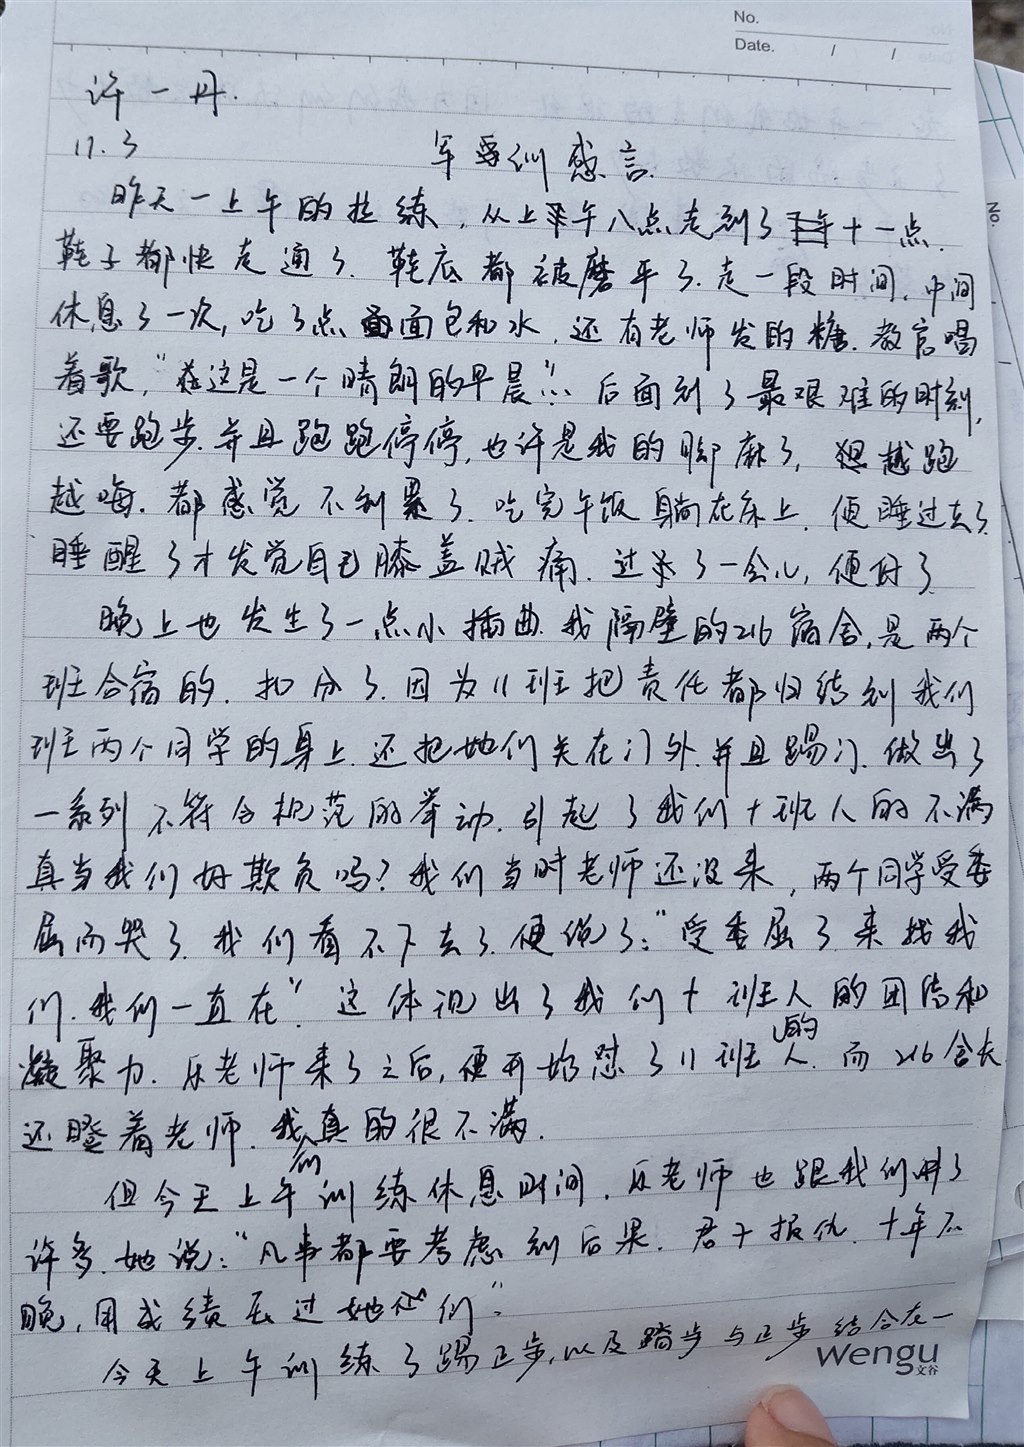 No.
Date. / /
许一丹.
11.3
军训感言.
昨天一上午的拉练,从上午八点走到了十一点.
鞋子都快走通了.鞋底都被磨平了.走一段时间.中间
休息了一次,吃了点面包和水.还有老师发的糖.教官唱
着歌,“在这是一个晴朗的早晨”… 后面到了最艰难的时刻,
还要跑步.并且跑跑停停,也许是我的脚麻了,越跑
越嗨.都感觉不到累了.吃完午饭躺在床上.便睡过去了.
睡醒了才发觉自己膝盖贼痛.过来了一会儿,便好了
晚上也发生了一点小插曲.我隔壁的216宿舍,是两个
班合宿的.扣分了.因为11班把责任都归结到我们
班两个同学的身上.还把她们关在门外.并且踢门.做出了
一系列不符合规范的举动.引起了我们十班人的不满
真当我们好欺负吗?我们当时老师还没来,两个同学受委
屈而哭了.我们看不下去了.便说了:“受委屈了来找我
们.我们一直在”.这体现出了我们十班人的团结和
凝聚力.乐老师来了之后,便开始怼了11班的人.而216舍长
还瞪着老师.我们真的很不满.
但今天上午训练休息时间.乐老师也跟我们聊了
许多.她说:“凡事都要考虑到后果.君子报仇.十年不
晚,用成绩压过她们”.
今天上午训练了踢正步,以及踏步与正步结合在一
wengu
文谷
No.